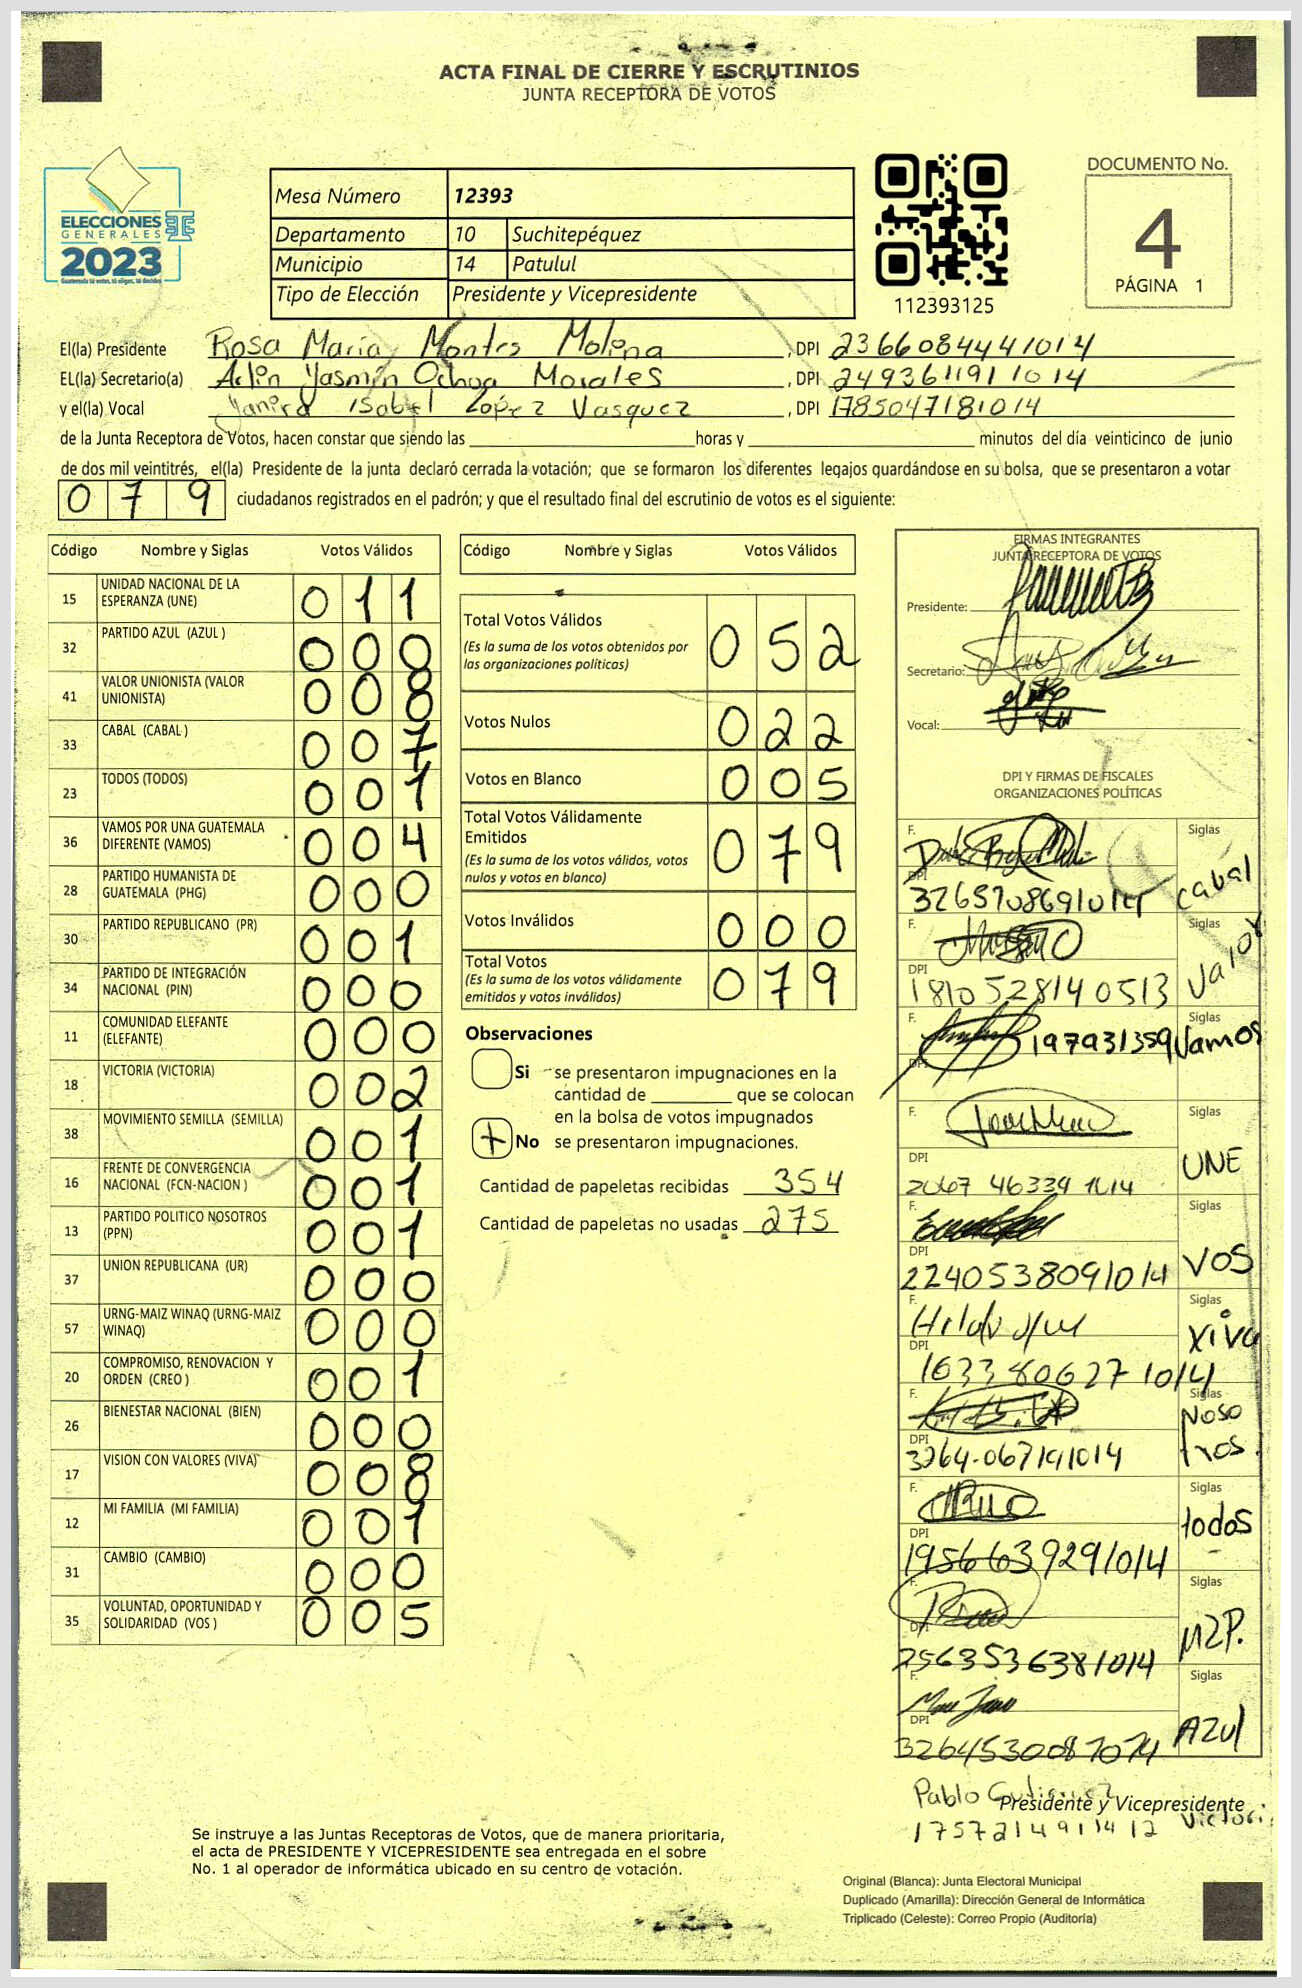 ACTA FINAL DE CIERRE Y ESCRUTINIOS
JUNTA RECEPTORA DE VOTOS
ELECCIONES
GENERALES
2023
Mesa Número 12393
Departamento 10 Suchitepéquez
Municipio 14 Patulul
Tipo de Elección Presidente y Vicepresidente
112393125
DOCUMENTO No.
4
PÁGINA 1
El(la) Presidente Rosa María Montes Molina, DPI 2366084441014
EL(la) Secretario(a) Arlin Yasmín Ochoa Morales, DPI 2493611911014
y el(la) Vocal Yanira Isabel López Vasquez, DPI 1785047181014
de la Junta Receptora de Votos, hacen constar que siendo las ____ horas y ____ minutos del día veinticinco de junio
de dos mil veintitrés, el(la) Presidente de la junta declaró cerrada la votación; que se formaron los diferentes legajos guardándose en su bolsa, que se presentaron a votar
079 ciudadanos registrados en el padrón; y que el resultado final del escrutinio de votos es el siguiente:
Código Nombre y Siglas Votos Válidos
15 UNIDAD NACIONAL DE LA ESPERANZA (UNE) 011
32 PARTIDO AZUL (AZUL ) 000
41 VALOR UNIONISTA (VALOR UNIONISTA) 008
33 CABAL (CABAL ) 007
23 TODOS (TODOS) 001
36 VAMOS POR UNA GUATEMALA DIFERENTE (VAMOS) 004
28 PARTIDO HUMANISTA DE GUATEMALA (PHG) 000
30 PARTIDO REPUBLICANO (PR) 001
34 PARTIDO DE INTEGRACIÓN NACIONAL (PIN) 000
11 COMUNIDAD ELEFANTE (ELEFANTE) 000
18 VICTORIA (VICTORIA) 002
38 MOVIMIENTO SEMILLA (SEMILLA) 001
16 FRENTE DE CONVERGENCIA NACIONAL (FCN-NACION ) 001
13 PARTIDO POLITICO NOSOTROS (PPN) 001
37 UNION REPUBLICANA (UR) 000
57 URNG-MAIZ WINAQ (URNG-MAIZ WINAQ) 000
20 COMPROMISO, RENOVACION Y ORDEN (CREO ) 001
26 BIENESTAR NACIONAL (BIEN) 000
17 VISION CON VALORES (VIVA) 008
12 MI FAMILIA (MI FAMILIA) 001
31 CAMBIO (CAMBIO) 000
35 VOLUNTAD, OPORTUNIDAD Y SOLIDARIDAD (VOS ) 005
Código Nombre y Siglas Votos Válidos
Total Votos Válidos 052
(Es la suma de los votos obtenidos por las organizaciones políticas)
Votos Nulos 022
Votos en Blanco 005
Total Votos Válidamente Emitidos 079
(Es la suma de los votos válidos, votos nulos y votos en blanco)
Votos Inválidos 000
Total Votos 079
(Es la suma de los votos válidamente emitidos y votos inválidos)
Observaciones
Si se presentaron impugnaciones en la
cantidad de ____ que se colocan
en la bolsa de votos impugnados
+ No se presentaron impugnaciones.
Cantidad de papeletas recibidas 354
Cantidad de papeletas no usadas 275
FIRMAS INTEGRANTES
JUNTA RECEPTORA DE VOTOS
Presidente:
Secretario:
Vocal:
DPI Y FIRMAS DE FISCALES
ORGANIZACIONES POLÍTICAS
F. Siglas
DPI cabal
F. Siglas
DPI 1810528140513 Valor
F. Siglas
DPI 197931359 Vamos
F. Siglas
DPI 2067 46339 1014 UNE
F. Siglas
DPI 2240538091014 VOS
F. Siglas
DPI 1633806271014 Viva
F. Siglas
DPI 3264-067191014 Nosotros.
F. Siglas
DPI 1956639291014 todos
F. Siglas
DPI 2563536381014
F. Siglas
DPI 3264530087074 AZul
Pablo Gutierrez
Presidente y Vicepresidente
Se instruye a las Juntas Receptoras de Votos, que de manera prioritaria,
el acta de PRESIDENTE Y VICEPRESIDENTE sea entregada en el sobre
No. 1 al operador de informática ubicado en su centro de votación.
Original (Blanca): Junta Electoral Municipal
Duplicado (Amarilla): Dirección General de Informática
Triplicado (Celeste): Correo Propio (Auditoría)